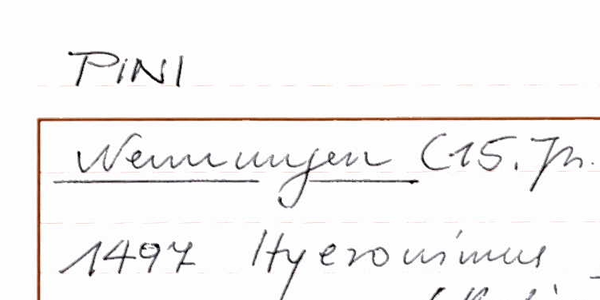 PINI
Nennungen (15. Jh.
1497 Hyeronimus